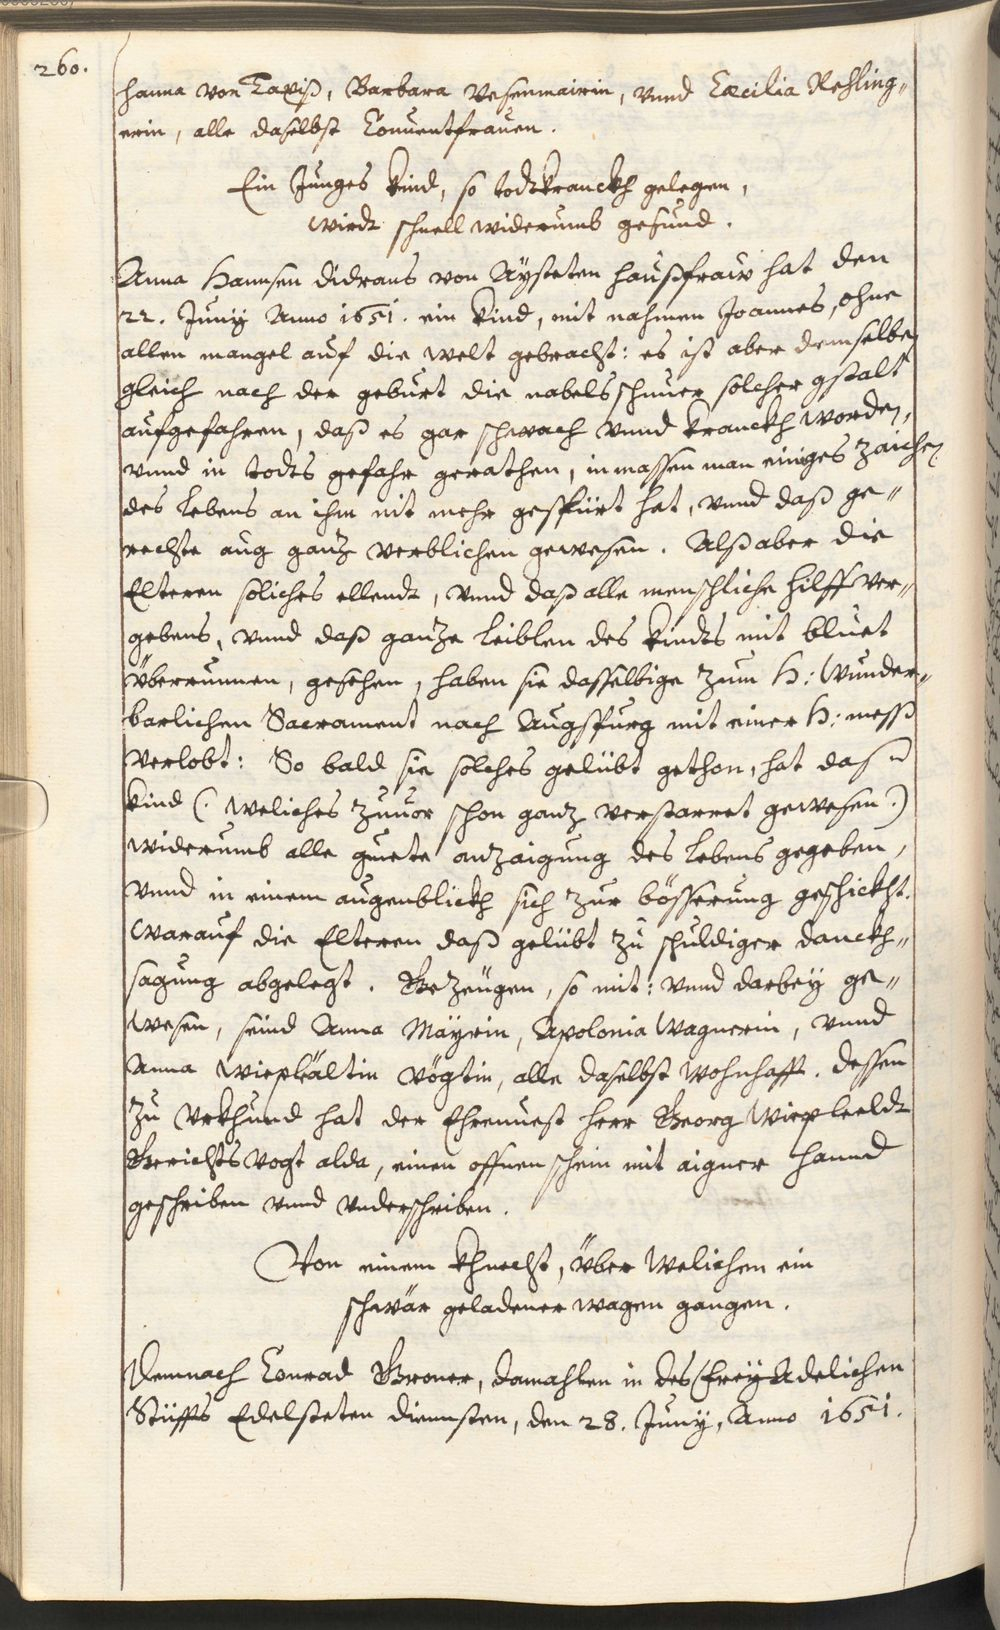 260.
hanna von Taxiß, Barbara Vesenmairin, vnnd Cæcilia Rehling„
erin, alle daselbst Conuentfrauen.
Ein Junges kind, so todtkranckh gelegen,
wirdt schnell widerumb gesund.
Anna Hannsen Didrans von Aÿsteten haußfraw hat den
22. Junÿ Anno 1651. ein kind, mit nahmen Joannes, ohne
allen mangel auf die welt gebracht: es ist aber demselben
gleich nach der geburt die nabelschnuer solcher gstalt
aufgefahren, daß es gar schwach vnnd kranckh worden,
vnnd in todts gefahr gerathen, inmassen man einiges zaichen
des lebens an ihm nit mehr gespürt hat, vnnd daß ge„
rechte aug gantz verblichen gewesen. Alß aber die
Elteren soliches ellendt, vnnd daß alle menschliche hilff ver„
gebens, vnnd daß gantze leiblen des kindts mit bluet
überrunnen, gesehen, haben sie dasselbige zum H: Wunder„
barlichen Sacrament nach Augspurg mit einer H: mess
verlobt: So bald sie solches gelübt gethon, hat das
kind (: weliches zuuor schon gantz verstarret gewesen :)
widerumb alle guete anzaigung des lebens gegeben,
vnnd in einem augenblickh sich zur bösserung geschickht.
Warauf die Elteren daß gelübt zu schuldiger danckh„
sagung abgelegt. Gezeügen, so mit: vnnd darbeÿ ge„
wesen, seind Anna Maÿrin, Apolonia Wagnerin, vnnd
Anna Wiepkältin Vögtin, alle daselbst wohnhafft. dessen
zu vrkhund hat der Ehrnuest herr Georg Wiepkeeldt
Gerichts Vogt alda, einen offnen schein mit aigner hannd
geschriben vnnd vnderschriben.
Von einem khnecht, über welichen ein
schwär geladener wagen gangen.
Demnach Conrad Groner, damahlen in des Freÿ Adelichen
Stüffts Edelsteten diennsten, den 28. Junÿ, Anno 1651.